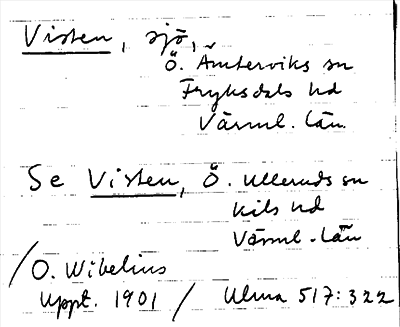 Visten, sjö,
Ö. Ämterviks sn
Fryksdals hd
Värml. län.
Se Visten, Ö. Ulleruds sn
Kils hd
Värml. län
/O. Wibelius
Uppt. 1901 / Ulma 517:322